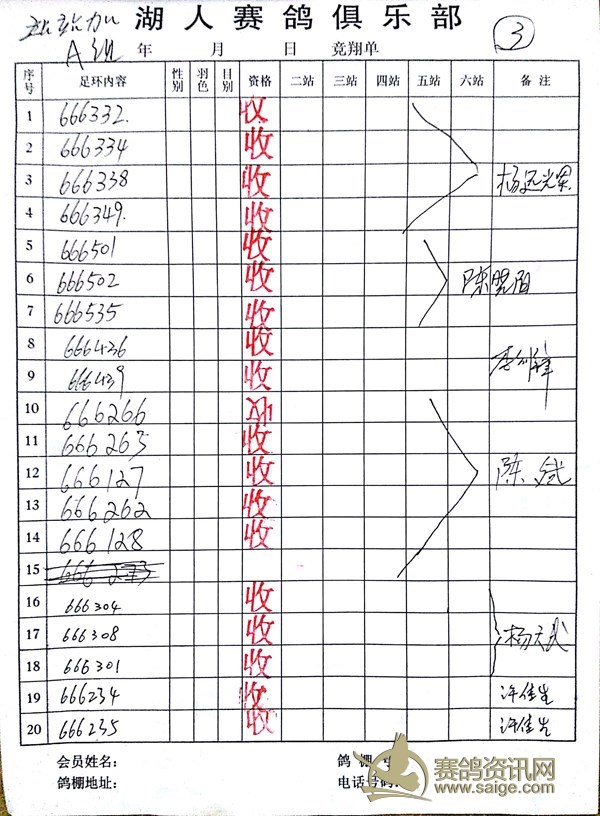 湖人赛鸽俱乐部
A组 年 月 日 竞翔单 3
序号 足环内容 性别 羽色 目别 资格 二站 三站 四站 五站 六站 备注
1 666332. 收
2 666334 收
3 666338 收
4 666349. 收
5 666501 收
6 666502 收 陈晓雨
7 666535 收
8 666436 收
9 666439 收
10 666266
11 666263 收
12 666127 收 陈斌
13 666262 收
14 666128 收
15
16 666304 收
17 666308 收 杨天武
18 666301 收
19 666234 收 许佳生
20 666235 收 许佳生
会员姓名: 鸽棚号
鸽棚地址: 电话号码:
赛鸽资讯网
www.saige.com